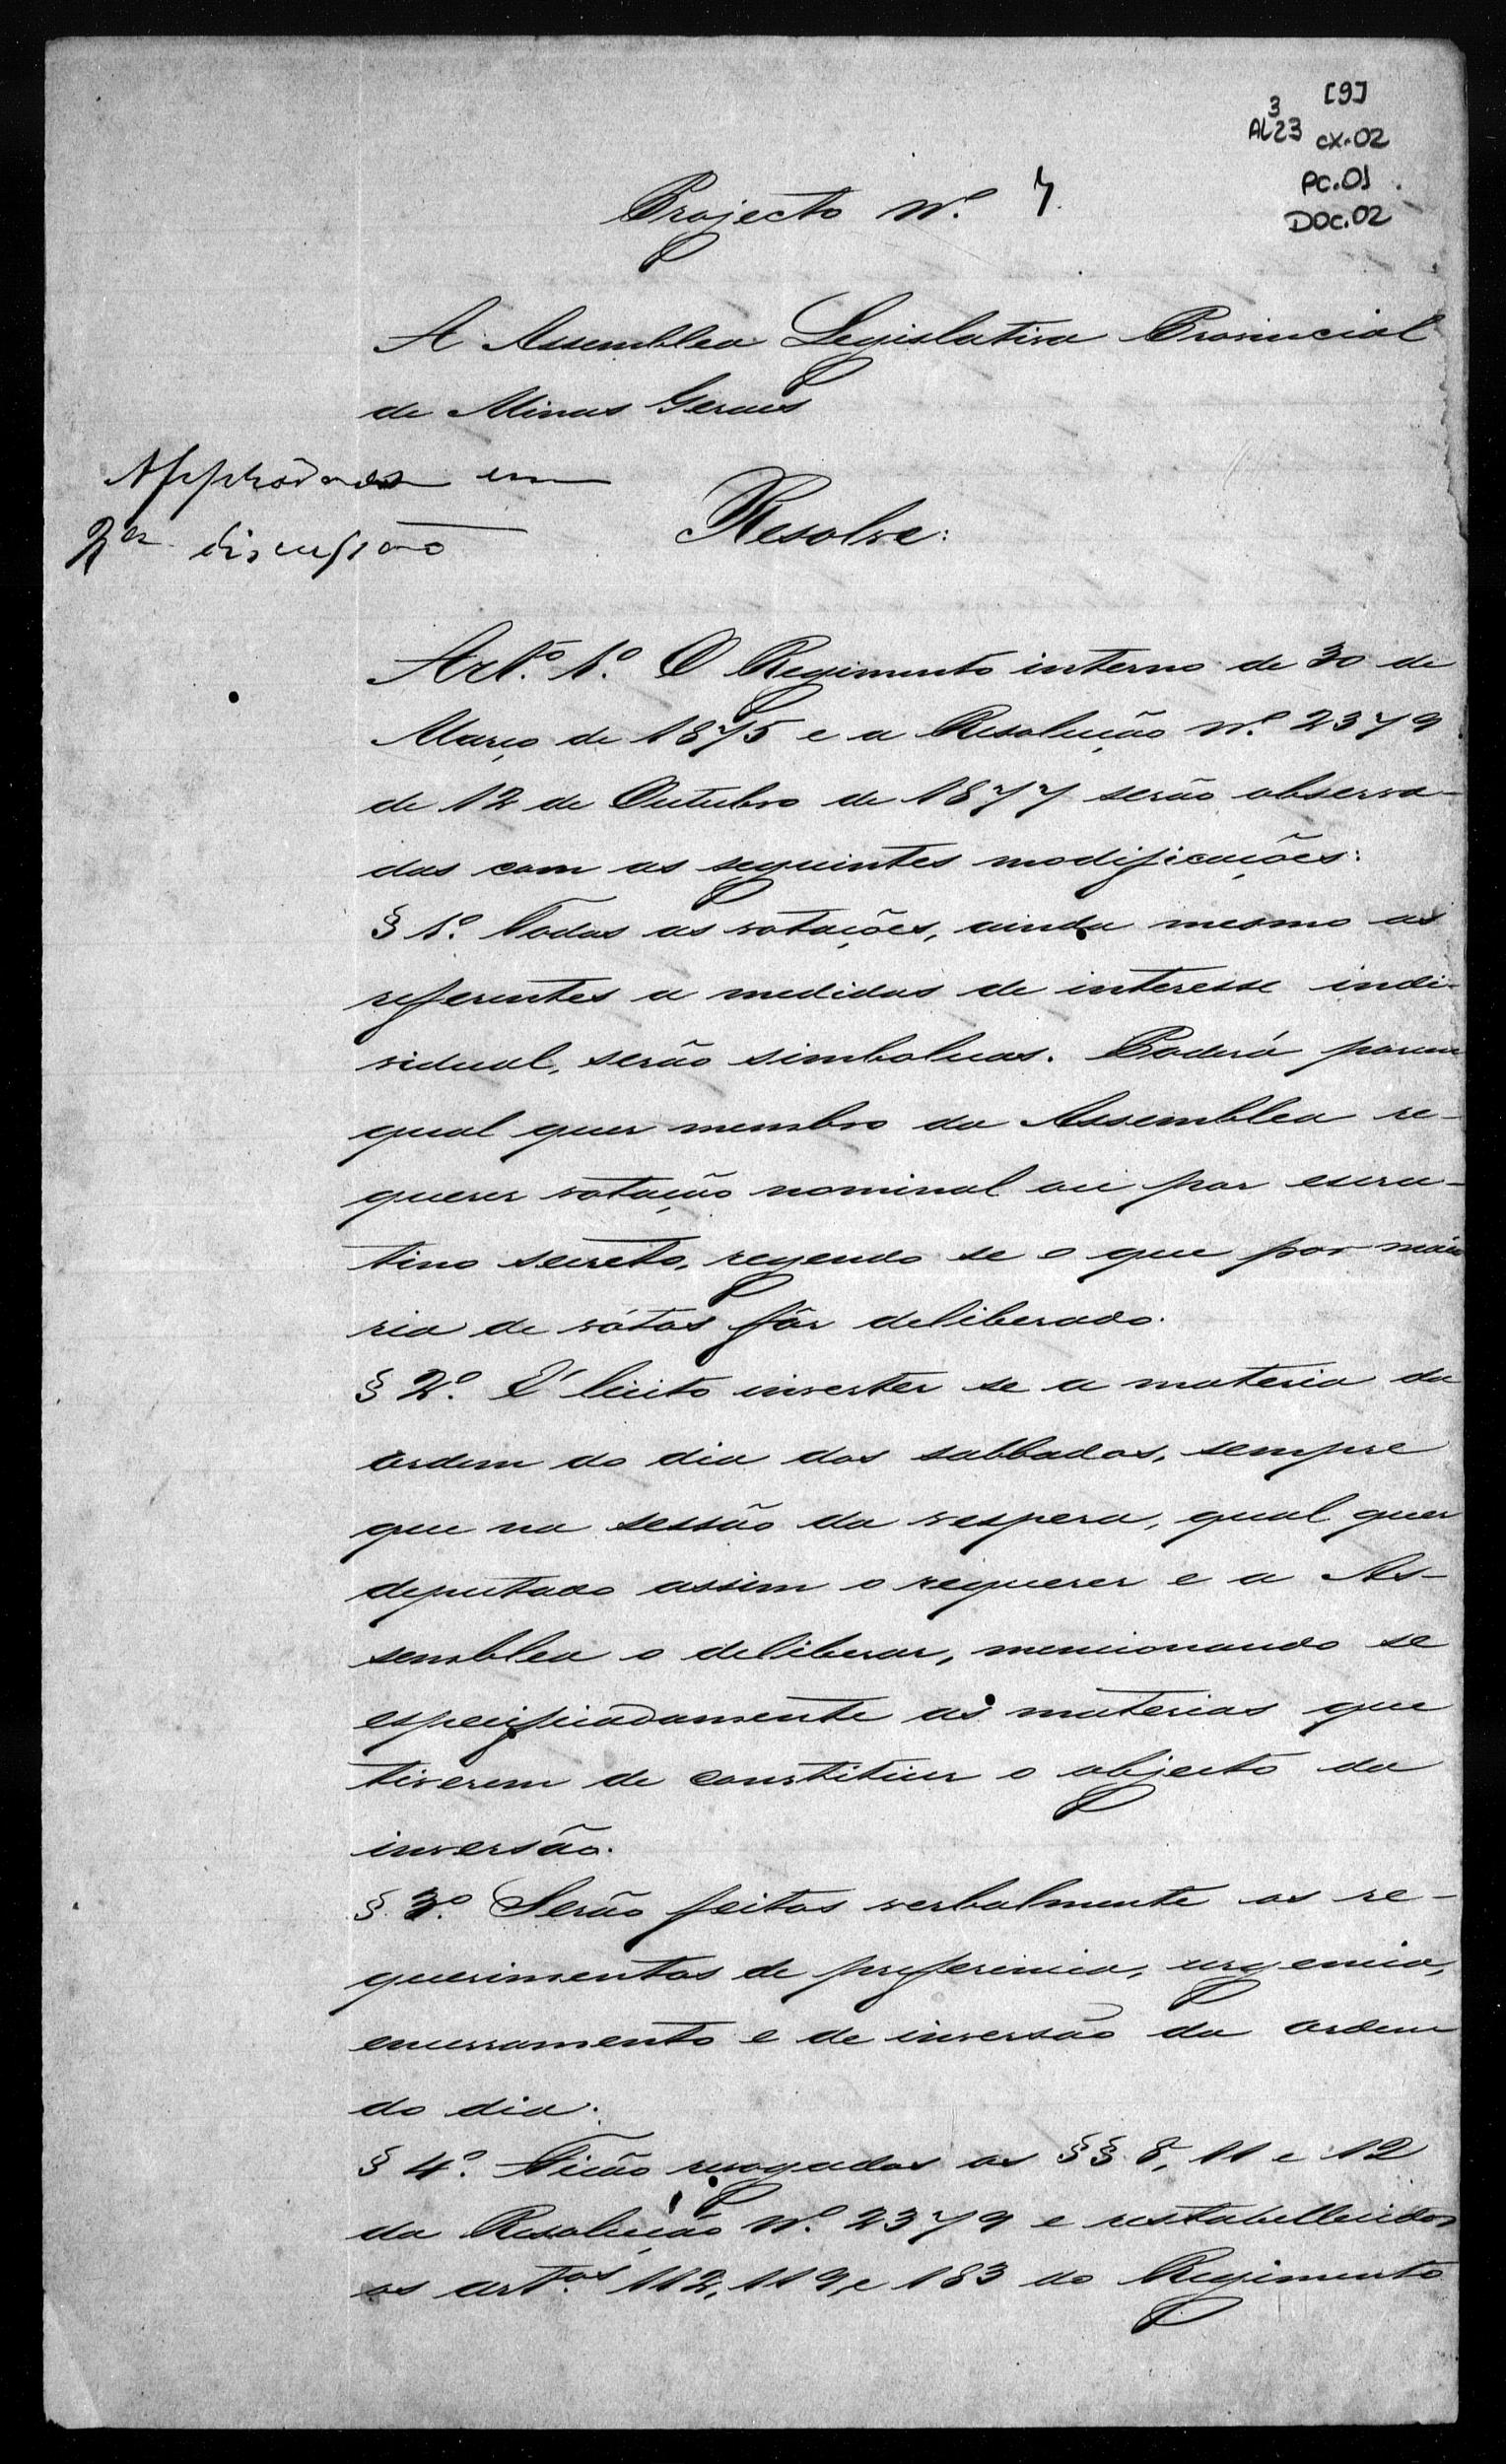 [9]
3
AL23 cx.02
PC.01
DOC.02
Projecto N.º 7.
A Assemblea Legislativa Provincial
de Minas Geraes
Approvado em
2ª discussão
Resolve:
Art.º 1.º O Regimento interno de 30 de
Março de 1875 e a Resolução N.º 2379
de 12 de Outubro de 1877 serão observa-
das com as seguintes modificações:
§ 1.º Todas as votações, ainda mesmo as
referentes a medidas de interesse indi-
vidual, serão simbolicas. Poderá porem
qual quer membro da Assemblea re-
querer votação nominal ou por escru-
tino secreto, regendo se o que por maio
ria de vótos fôr deliberado.
§ 2.º E' licito inverter se a materia da
ordem do dia dos sabbados, sempre
que na sessão da vespera, qual quer
deputado assim o requerer e a As-
semblea o deliberar, mencionando se
especificadamente as materias que
tiverem de constituir o objecto da
inversão.
§ 3.º Serão feitos verbalmente os re-
querimentos de preferencia, urgencia,
encerramento e de inversão da ordem
do dia.
§ 4.º Ficão revogados os §§ 8, 11 e 12
da Resolução N.º 2379 e restabellecidos
os art.os 112, 119, e 183 do Regimento